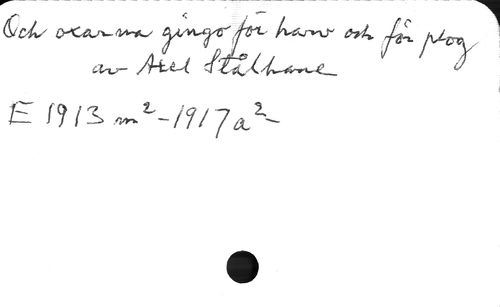 Och oxarna gingo för harv och för plog
av Axel Stålhane
E 1913 m² - 1917 a² -